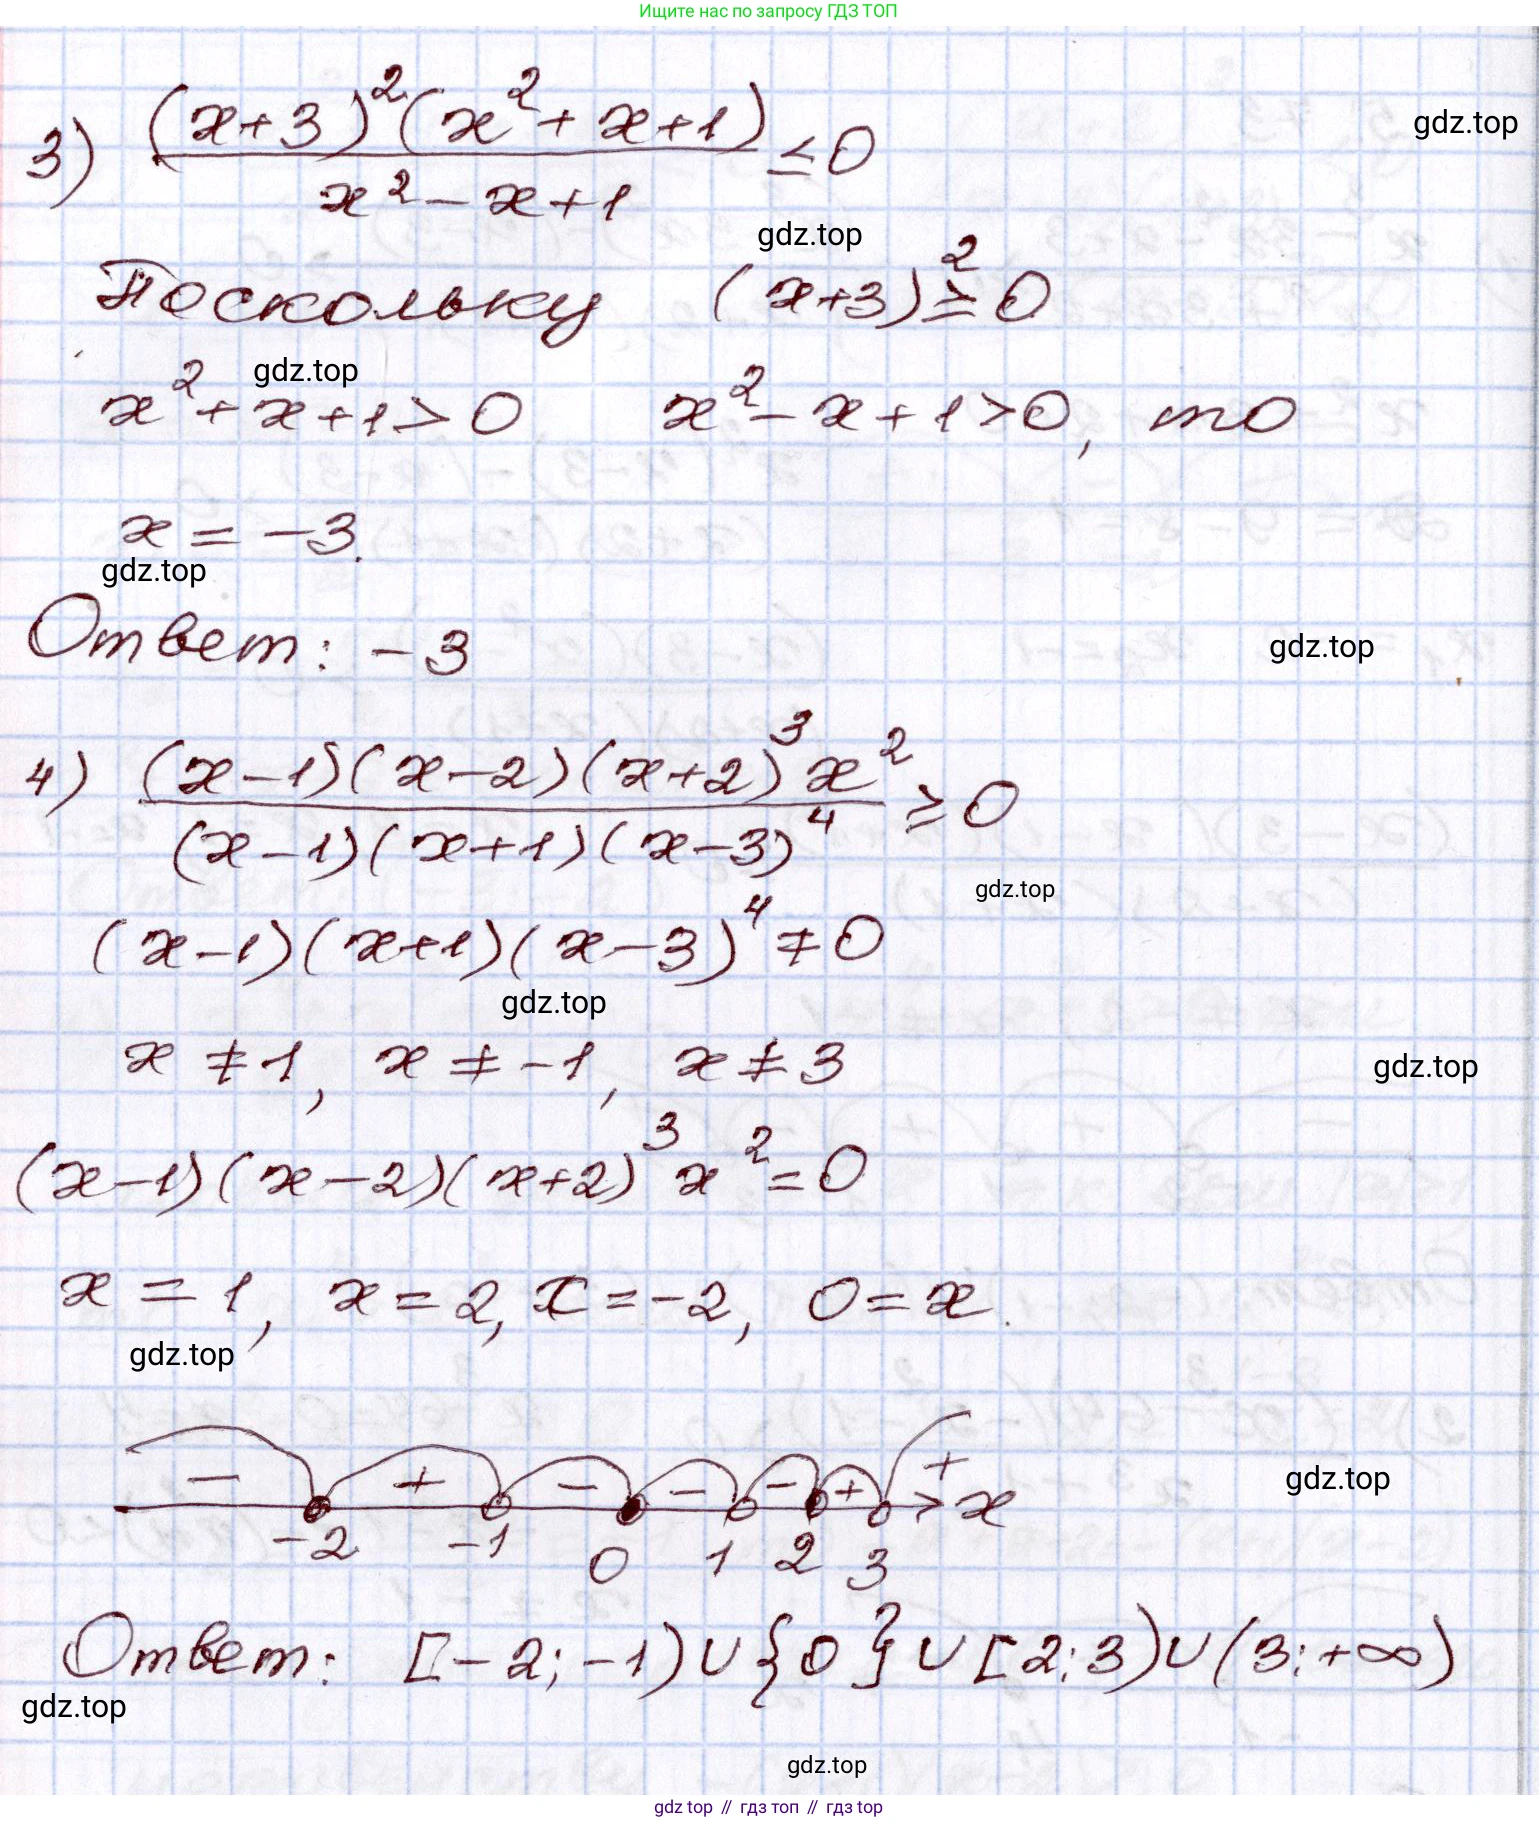 Ищите нас по запросу ГДЗ ТОП
3) (x+3)²(x²+x+1) / x²-x+1 ≤ 0
gdz.top
gdz.top
Поскольку (x+3)² ≥ 0
gdz.top
x²+x+1>0 x²-x+1>0, то
x = -3.
gdz.top
Ответ: -3
gdz.top
4) (x-1)(x-2)(x+2)³x² / (x-1)(x+1)(x-3)⁴ ≥ 0
gdz.top
(x-1)(x+1)(x-3)⁴ ≠ 0
gdz.top
x ≠ 1, x ≠ -1, x ≠ 3
gdz.top
(x-1)(x-2)(x+2)³x² = 0
x = 1, x = 2, x = -2, 0 = x.
gdz.top
- + - - - + + x
gdz.top
-2 -1 0 1 2 3
Ответ: [-2;-1)∪{0}∪[2;3)∪(3;+∞)
gdz.top
gdz.top
gdz top // гдз топ // gdz.top